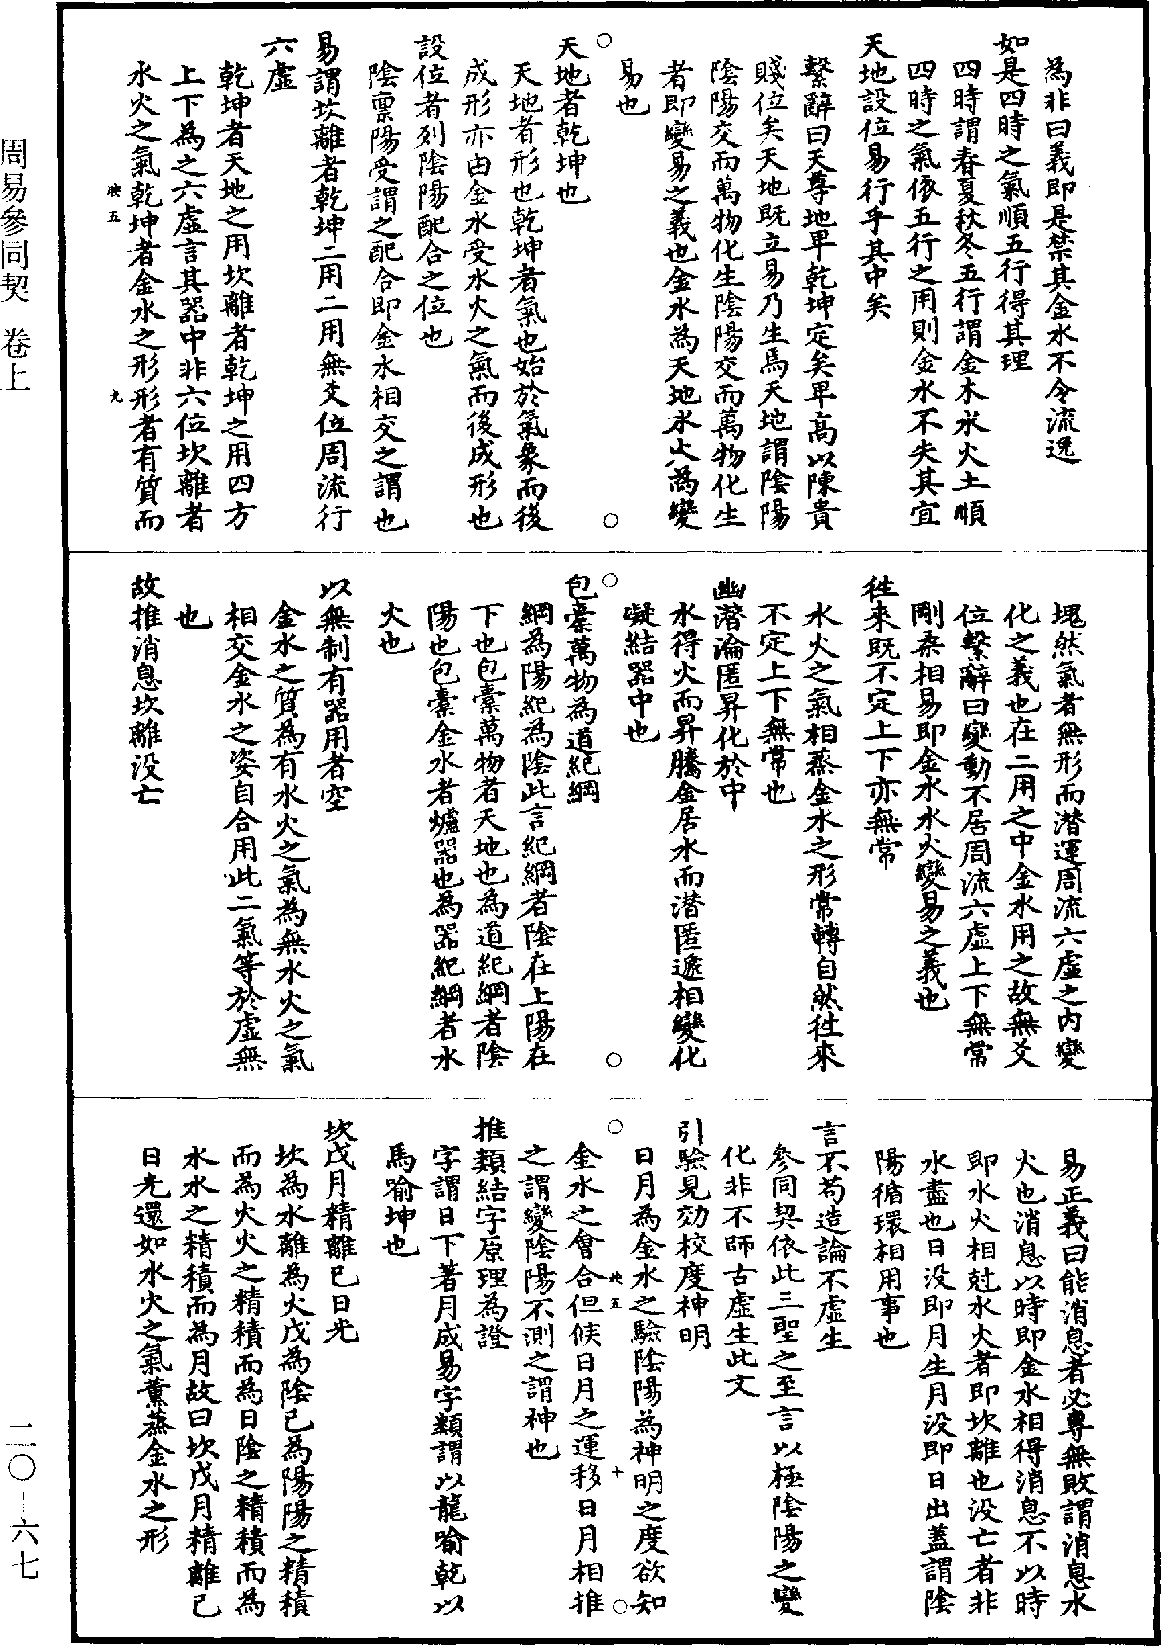 為非曰義即是禁其金水不令流逸
如是四時之氣順五行得其理
四時謂春夏秋冬五行謂金木水火土順
四時之氣依五行之用則金水不失其宜
天地設位易行乎其中矣
繫辭曰天尊地卑乾坤定矣卑高以陳貴
賤位矣天地既立易乃生焉天地謂陰陽
陰陽交而萬物化生陰陽交而萬物化生
者即變易之義也金水為天地水火為變
易也
天地者乾坤也
天地者形也乾坤者氣也始於氣象而後
成形亦由金水受水火之氣而後成形也
設位者列陰陽配合之位也
陰稟陽受謂之配合即金水相交之謂也
易謂坎離者乾坤二用二用無爻位周流行
六虛
乾坤者天地之用坎離者乾坤之用四方
上下為之六虛言其器中非六位坎離者
水火之氣乾坤者金水之形形者有質而
映五 九
塊然氣者無形而潛運周流六虛之內變
化之義也在二用之中金水用之故無爻
位繫辭曰變動不居周流六虛上下無常
剛柔相易即金水水火變易之義也
往來既不定上下亦無常
水火之氣相蒸金水之形常轉自然往來
不定上下無常也
幽潛淪匿昇化於中
水得火而昇騰金居水而潛匿遞相變化
凝結器中也
包橐萬物為道紀綱
綱為陽紀為陰此言紀綱者陰在上陽在
下也包橐萬物者天地也為道紀綱者陰
陽也包橐金水者爐器也為器紀綱者水
火也
以無制有器用者空
金水之質為有水火之氣為無水火之氣
相交金水之姿自合用此二氣等於虛無
也
故推消息坎離没亡
易正義曰能消息者必專無敗謂消息水
火也消息以時即金水相得消息不以時
即水火相尅水火者即坎離也没亡者非
水盡也日没即月生月没即日出蓋謂陰
陽循環相用事也
言不苟造論不虛生
參同契依此三聖之至言以極陰陽之變
化非不師古虛生此文
引驗見効校度神明
日月為金水之驗陰陽為神明之度欲知
映五 十
金水之會合但候日月之運移日月相推
之謂變陰陽不測之謂神也
推類結字原理為證
字謂日下著月成易字類謂以龍喻乾以
馬喻坤也
坎戊月精離已日光
坎為水離為火戊為陰已為陽陽之精積
而為火火之精積而為日陰之精積而為
水水之精積而為月故曰坎戊月精離已
日光還如水火之氣薰蒸金水之形
周易參同契 卷上
二〇-六七